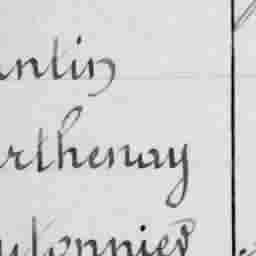 antin
rthenay
utonnier